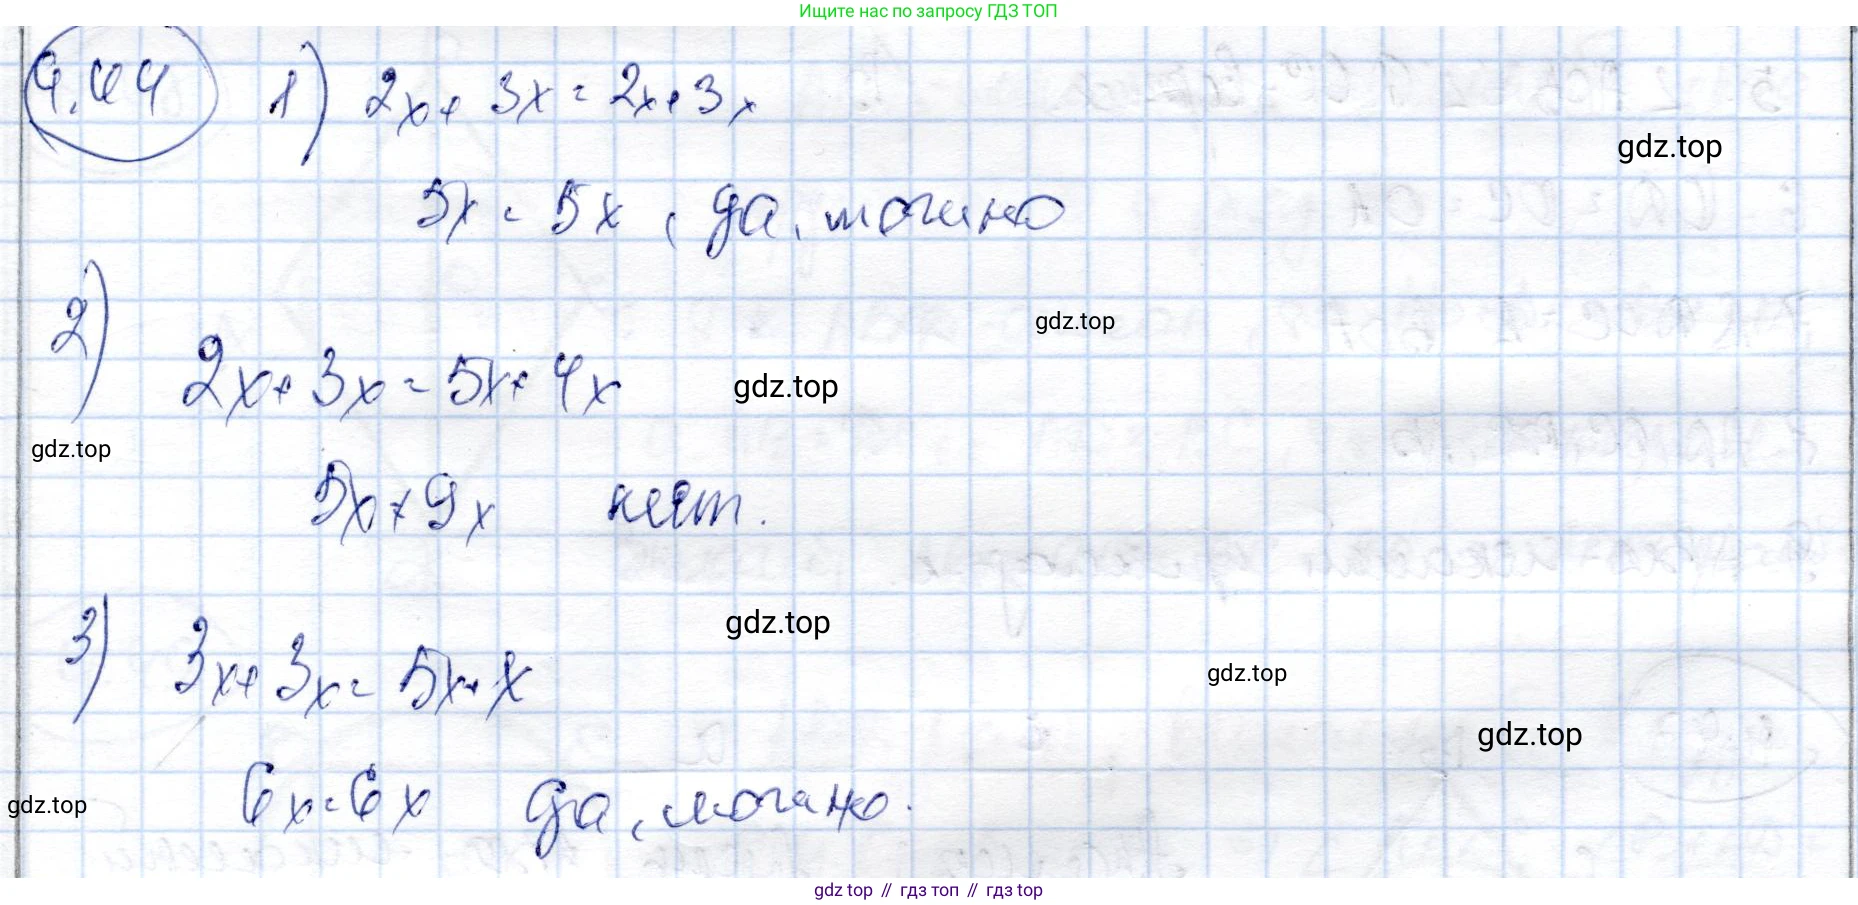 Ищите нас по запросу ГДЗ ТОП
4.44 1) 2x + 3x = 2x + 3x
gdz.top
5x = 5x, да, можно
2)
gdz.top
2x + 3x = 5x + 4x
gdz.top
gdz.top
5x ≠ 9x нет.
3)
gdz.top
3x + 3x = 5x + x
gdz.top
gdz.top
6x = 6x да, можно.
gdz.top
gdz top // гдз топ // гдз top